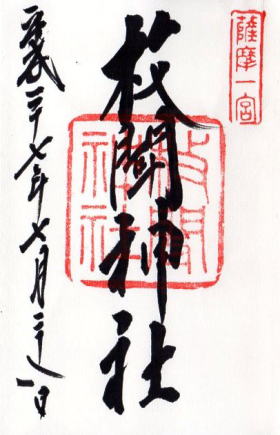 薩摩一宮
枚聞神社
枚聞
神社
平成二十七年七月二十一日